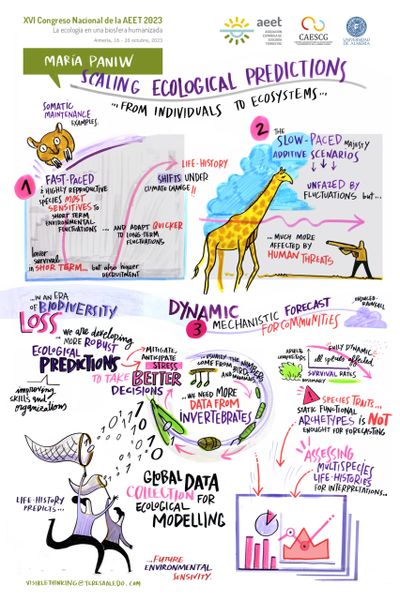 XVI Congreso Nacional de la AEET 2023
La ecología en una biosfera humanizada
Almería, 16 - 20 octubre, 2023
aeet
ASOCIACIÓN
ESPAÑOLA DE
ECOLOGÍA
TERRESTRE
CAESCG
UNIVERSIDAD
DE ALMERÍA
MARÍA PANIW
SCALING ECOLOGICAL PREDICTIONS
...FROM INDIVIDUALS TO ECOSYSTEMS...
SOMATIC
MAINTENANCE
EXAMPLES.
1
FAST-PACED
& HIGHLY REPRODUCTIVE
SPECIES MOST
SENSITIVES TO
SHORT TERM
ENVIRONMENTAL
FLUCTUATIONS...
LIFE-HISTORY
SHIFTS UNDER
CLIMATE CHANGE!!
...AND ADAPT QUICKER
TO LONG-TERM
FLUCTUATIONS
lower
survival
in SHORT TERM... but also higher
RECRUITMENT
2
THE
SLOW-PACED MAJESTY
ADDITIVE SCENARIOS
UNFAZED BY
FLUCTUATIONS BUT...
...MUCH MORE
AFFECTED BY
HUMAN THREATS
...IN AN ERA
OF BIODIVERSITY
LOSS
we are developing
MORE ROBUST
ECOLOGICAL
PREDICTIONS
MITIGATE,
ANTICIPATE
STRESS
TO TAKE BETTER
DECISIONS
improving
skills and
organizations
DYNAMIC
3 MECHANISTIC FORECAST
FOR COMMUNITIES
...usually the numbers
come from BIRDS
AND
mammals
...WE NEED
MORE
DATA FROM
INVERTEBRATES
all species affected
SURVIVAL RATES
SPECIES TRAITS...
STATIC FUNCTIONAL
ARCHETYPES IS NOT
ENOUGHT FOR FORECASTING
ASSESSING
MULTISPECIES
LIFE-HISTORIES
FOR INTERPRETATIONS...
LIFE-HISTORY
PREDICTS...
GLOBAL DATA
COLLECTION FOR
ECOLOGICAL
MODELLING
...FUTURE
ENVIRONMENTAL
SENSIVITY.
VISIBLETHINKING@TERESAALEDO.COM